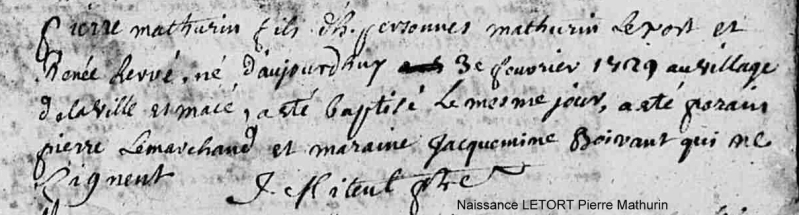 pierre mathurin fils d'h. personnes mathurin Letort et
Renée hervé, né d'aujourdhuy 3e fevrier 1729 au village
de la ville et macé, a eté baptisé Le mesme jour, a eté parain
pierre Lemarchand et maraine Jacquemine Boivant qui ne
signent
Naissance LETORT Pierre Mathurin